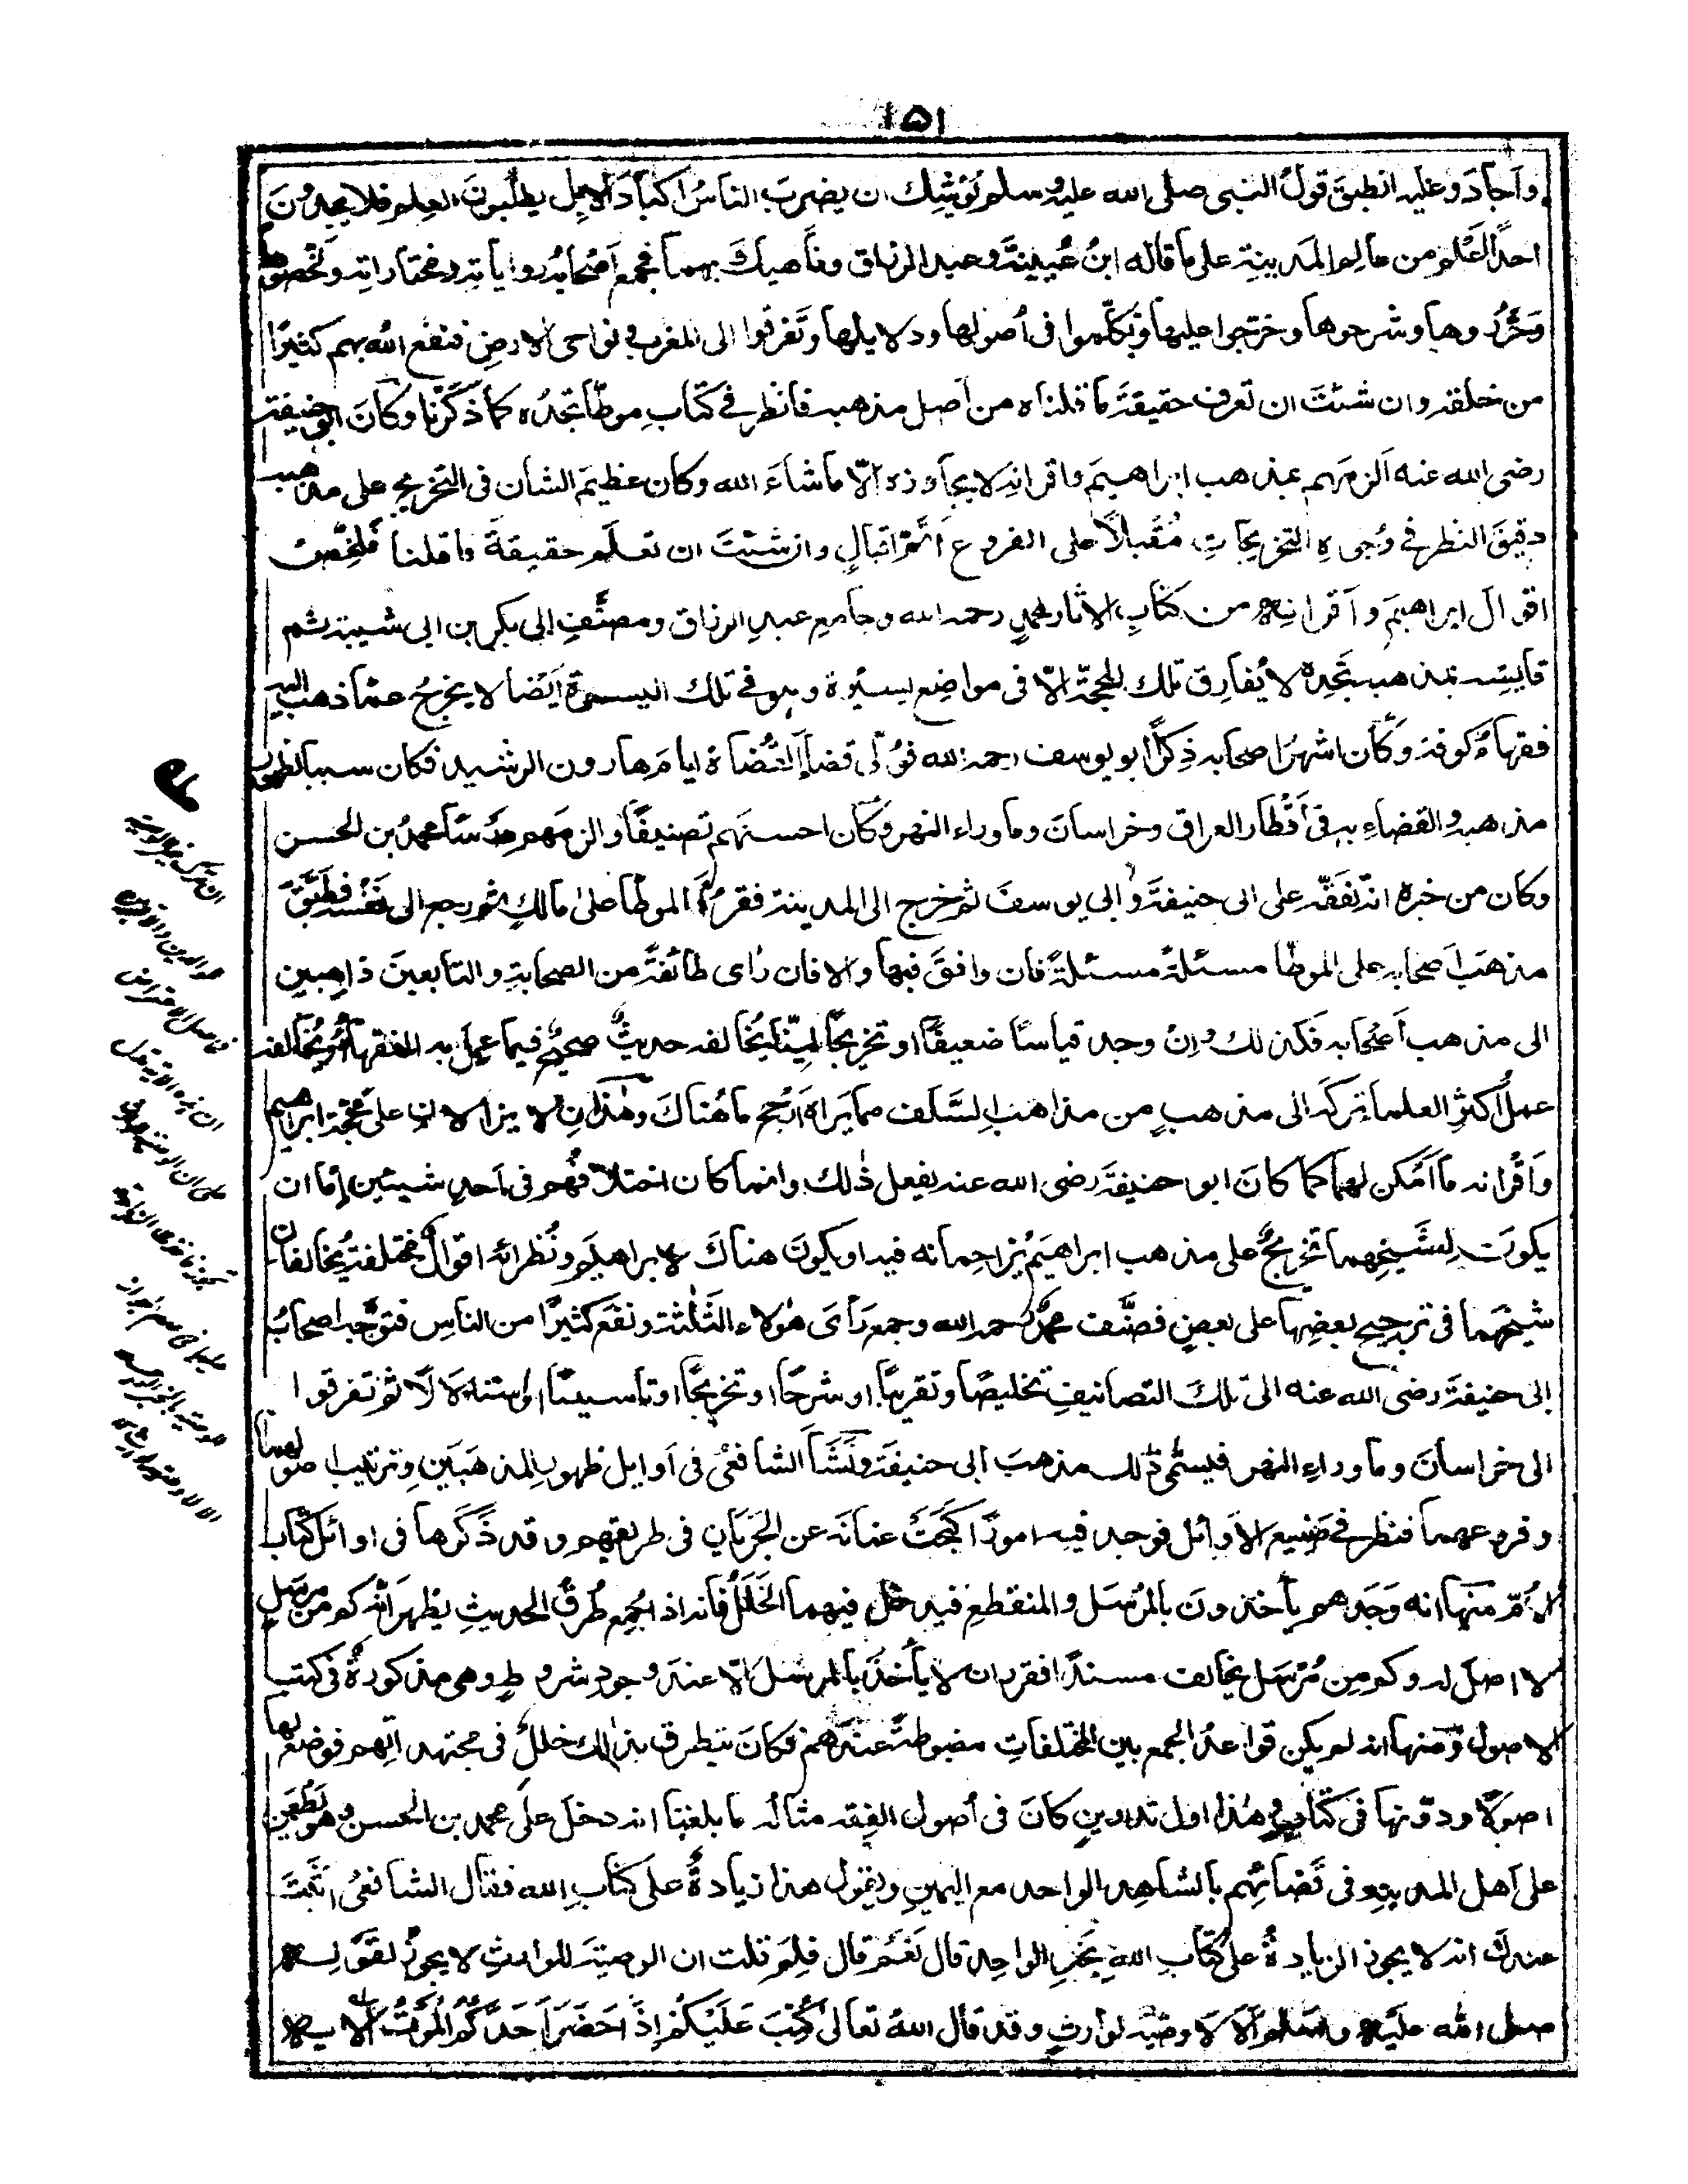 ١٥١
واَجادَ وعليه انطبقَ قولُ النبى صلى الله عليه وسلم يُوشِك ان يضربَ الناسُ اكبادَ الابِلِ يطلُبونَ العِلم فلا يجدونَ
احدًا اَعْلم من عالم المدينةِ على ما قاله ابنُ عُيينةَ وعبد الرزاق وناهيكَ بهما فجمع اَصْحابُه رواياتِه ومختاراتِه ولَخَّصوها
وحَرَّروها وشرحوها وخرّجوا عليها وتكلّموا فى اُصولها ودلايلها وتَفرقوا الى المغرب ونواحى الارضِ فنفع اللهُ بهم كثيرًا
من خلقه وان شئتَ ان تعرف حقيقةَ ما قلناه من اَصل مذهبه فانظر فى كتابِ موطّأ تجدُه كما ذكَرْنا وكانَ ابو حنيفة
رضى الله عنه اَلزمَهم بمذهب ابراهيمَ واقرانِه لا يجاوزه اِلّا ما شاءَ الله وكان عظيمَ الشان فى التخريج على مذهبه
دقيقَ النظر فى وُجوهِ التخريجاتِ مُقْبلاً على الفروع اَتَمَّ اقبالٍ وان شئتَ ان تعلَم حقيقةَ ما قلنا فلَخِّصْ
اقوالَ ابراهيمَ واَقرانِه من كتابِ الاثار لمحمدٍ رحمه الله وجامعِ عبدِ الرزاق ومصنَّفِ ابى بكر بن ابى شيبة ثم
قايسه بمذهبه تجِدْه لا يُفارِق تلك المحجّة اِلّا فى مواضِع يسيْرة وهو فى تلك اليسيرةِ اَيْضا لا يخرجُ عمّا ذهب اليه
فقهاءُ كوفة وكان اشهرَ اصحابه ذِكرًا ابو يوسف رحمه الله فوُلّى قضاءَ القُضاة ايامَ هارون الرشيد فكان سببا لظهور
مذهبه والقضاءِ به فى اَقْطار العراق وخراسانَ وما وراء النهر وكان احسنَهم تصنيفًا والزمَهم درسًا محمدُ بن الحسن
وكان من خبره انه تفَقّه على ابى حنيفةَ وابى يوسفَ ثم خرج الى المدينة فقرأ الموطّا على مالكٍ ثم رجع الى نفْسه فطَبَّقَ
مذهبَ اصحابه على الموطّا مسئلةً مسئلةً فان وافقَ فبها والا فان راى طائفةً من الصحابةِ والتابعينَ ذاهبين
الى مذهب اَصْحابه فكذلك وان وجد قياسًا ضعيفًا او تخريجًا ليّنًا يُخالفه حديثٌ صحيحٌ فيما عمِل به الفقهاءُ ويُخالفه
عملُ اكثرِ العلماء تركه الى مذهبٍ من مذاهبِ السَّلف مما يَراه اَرْجح ما هُناكَ وهٰذانِ لا يزالانِ على محجّة ابراهيم
واَقْرانه ما اَمْكن لهما كما كانَ ابو حنيفةَ رضى الله عنه يفعل ذٰلك وانما كان اختلافُهم فى اَحدِ شيئين اِمّا ان
يكونَ لِشَيخِهما تخريجٌ على مذهب ابراهيمَ يُزاحمانه فيه او يكونَ هناكَ لابراهيمَ ونُظرائه اقوالٌ مختلفةٌ يُخالفان
شيخَهما فى ترجيح بعضِها على بعضٍ فصنَّف محمدٌ رحمه الله وجمع رَأىَ هٰؤلاءِ الثَّلٰثة ونفَع كثيرًا من الناسِ فتوَجَّه اصحابُ
ابى حنيفةَ رضى الله عنه الى تلكَ التصانيفِ تخليصًا وتقريبًا او شرحًا او تخريجًا او تاسيسًا او استدلالًا ثم تفرقوا
الى خراسانَ وما وراءِ النهر فيسمّٰى ذٰلك مذهبَ ابى حنيفةَ ونشَأ الشافعىُّ فى اَوايل ظهورِ المذهَبَينِ وترتيبِ اصولهما
وفروعهما فنظر فى صَنيعِ الاَوائل فوجد فيه امورًا كَبَحَتْ عنانَه عن الجَرَيانِ فى طريقهم وقد ذَكَرها فى اوائل كتاب
الاُمّ منها انه وَجَدهم يأخذونَ بالمُرْسَل والمنقطعِ فيدخل فيهما الخَلَلُ فانه اذا جُمِع طُرقُ الحديثِ يظهرُ اَنّه كم من مرسَلٍ
لا اصلَ له وكم مِن مُرْسَلٍ يخالف مسندًا فقرر ان لا يأخذَ بالمرسَل اِلّا عندَ وجودِ شروطٍ وهى مذكورةٌ فى كتب
الاصول ومنها انه لم يكن قواعدُ الجمع بين المختلفاتِ مضبوطةً عندَهم فكانَ يتطرق بذٰلك خللٌ فى مجتهداتِهم فوضع لها
اصولًا ودوّنها فى كتابٍ وهٰذا اول تدوينٍ كانَ فى اُصول الفِقه مثاله ما بلغنا انه دخَلَ علَى محمد بن الحسن وهو يَطْعَن
على اهل المدينةِ فى قَضائهم بالشاهِد الواحد مع اليمينِ ويقول هذا زيادةٌ على كتابِ الله فقال الشافعىُّ اَثَبتَ
عندك انه لا يجوز الزيادةُ على كتاب اللهِ بخبرِ الواحِد قال نَعَمْ قال فلِمَ قلت ان الوصيةَ للوارثِ لا يجوزُ لقَوْلِه
صلى الله عليه وسلم اَلَا لا وصيّةَ لوارثٍ وقد قال اللهُ تعالىٰ كُتِبَ عَلَيْكُمْ اِذَا حَضَرَ اَحَدَكُمُ الْمَوْتُ الآية